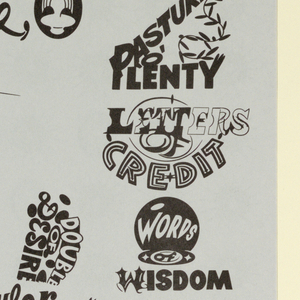 PASTURE
O'
PLENTY
LETTERS
OF
CREDIT
WORDS
OF
WISDOM
DOUBLE
OF
DESIRE